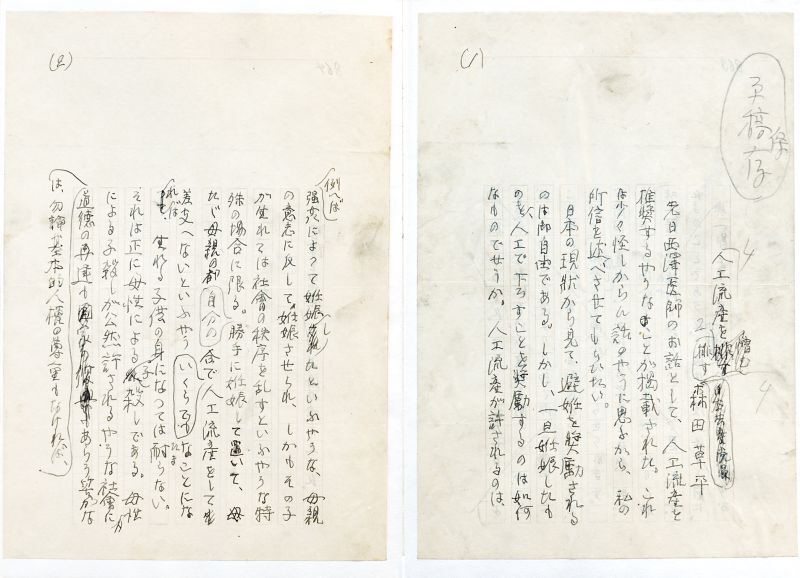 (1)
草稿
人工流産を排す
森田草平
先日西澤医師のお話として、人工流産を
推奨するやうなことが掲載された。これ
は少々怪しからん話のやうに思ふから、私の
所信を述べさせてもらひたい。
日本の現状から見て、避妊を奨励される
のは御自由である。しかし、一旦妊娠したも
のを人工で下ろすことを奨励するのは如何
なものでせうか。人工流産が許されるのは、
(2)
例へば
強姦によつて妊娠したといふやうな、母親
の意志に反して妊娠させられ、しかもその子
が生れては社會の秩序を乱すといふやうな特
殊の場合に限る。勝手に妊娠して置いて、母
たゞ母親の都合で人工流産をしても
自分の
差支へないといふやう なことにな
れば
生れる子供の身になつては耐らない。
それは正に母性による子殺しである。母性
による子殺しが公然許されるやうな社會に
道徳の
は、勿論基本的人権の尊重もなければ、